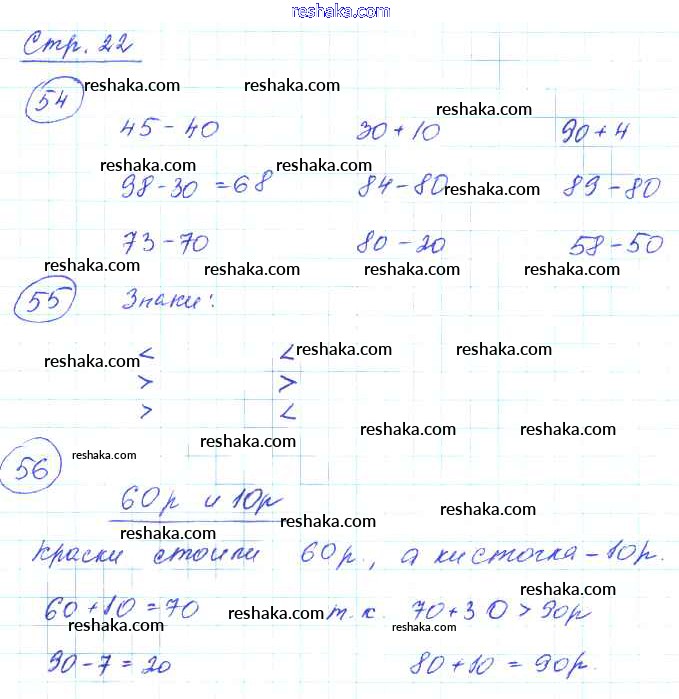 reshaka.com
Стр. 22
54 reshaka.com reshaka.com reshaka.com
45 - 40 30 + 10 90 + 4
reshaka.com reshaka.com
98 - 30 = 68 84 - 80 reshaka.com 89 - 80
73 - 70 80 - 20 58 - 50
reshaka.com reshaka.com reshaka.com reshaka.com
55 Знаки:
reshaka.com < < reshaka.com reshaka.com
> >
> <
reshaka.com reshaka.com reshaka.com
56 reshaka.com
60р и 10р
reshaka.com reshaka.com reshaka.com
краски стоили 60р., а кисточка - 10р.
reshaka.com
60 + 10 = 70 reshaka.com т.к. 70 + 30 > 90р
reshaka.com reshaka.com
90 - 7 = 20 80 + 10 = 90р.
reshaka.com